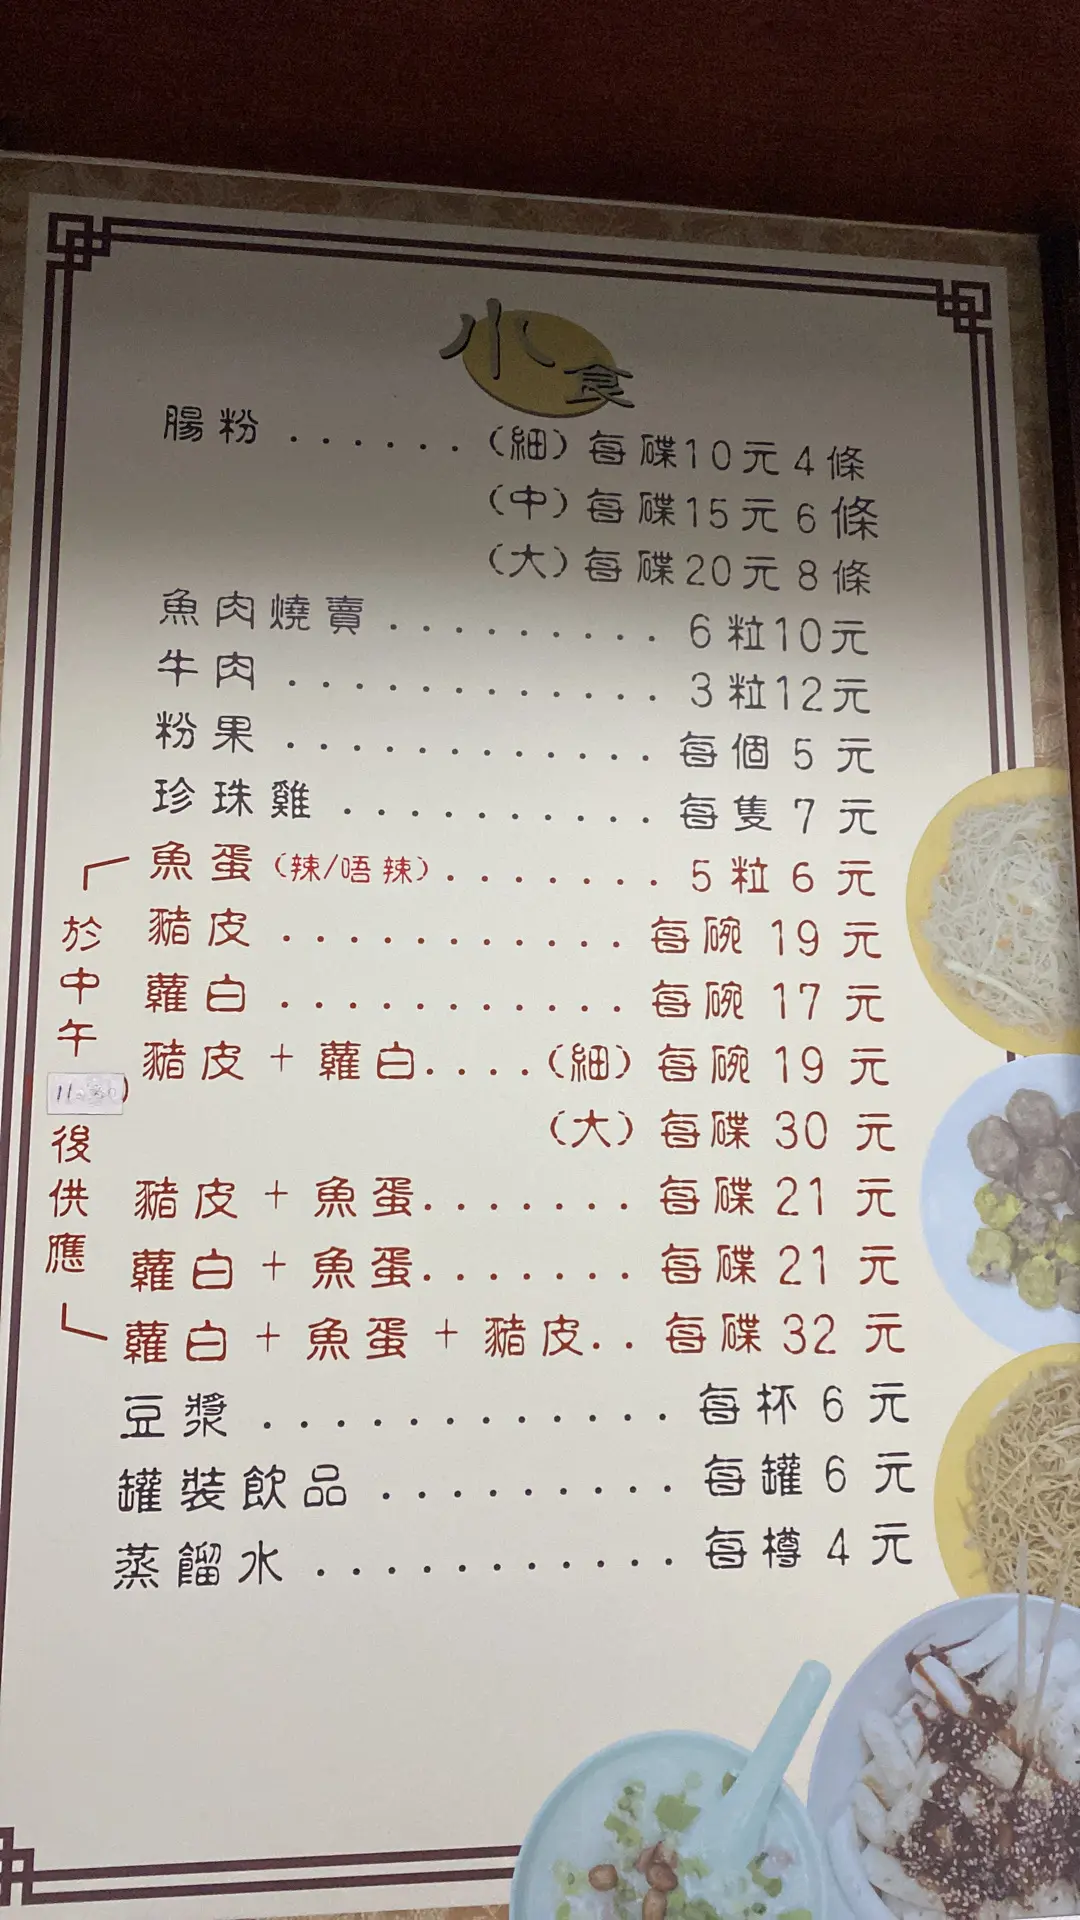 小食
腸粉......(細)每碟10元4條
(中)每碟15元6條
(大)每碟20元8條
魚肉燒賣.........6粒10元
牛肉............3粒12元
粉果............每個5元
珍珠雞..........每隻7元
魚蛋(辣/唔辣).......5粒6元
豬皮...........每碗19元
蘿白...........每碗17元
豬皮+蘿白....(細)每碗19元
(大)每碟30元
豬皮+魚蛋.......每碟21元
蘿白+魚蛋.......每碟21元
蘿白+魚蛋+豬皮..每碟32元
於中午
後供應
豆漿.............每杯6元
罐裝飲品.........每罐6元
蒸餾水...........每樽4元